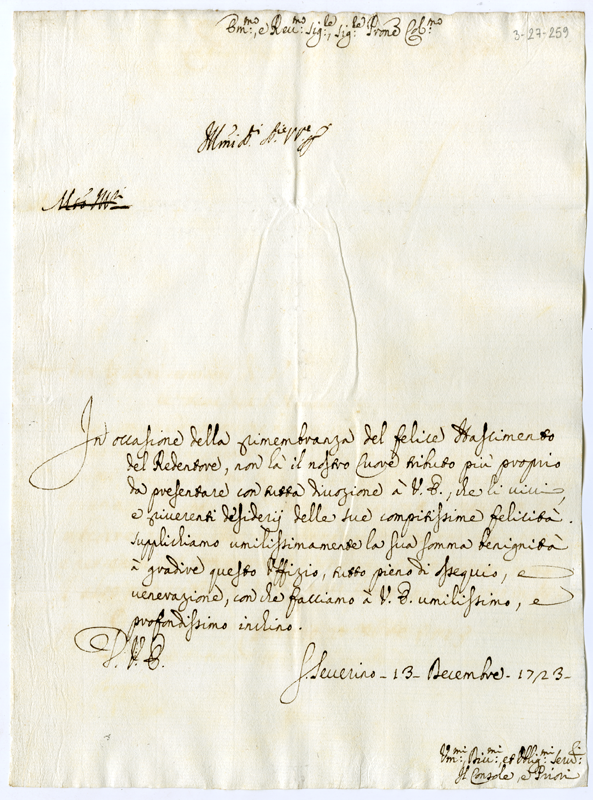 3-27-259
Em:mo, e Reu:mo Sig:re, Sig:re Prone Col:mo
In occasione della rimembranza del felice Nascimento
del Redentore, non là il nostro Cuore tributo più proprio
da presentare con tutta divozione à V. E., che li vivi,
e riverenti desiderij delle sue compitissime felicità.
supplichiamo umilissimamente la sua somma benignità
à gradire questo Offizio, tutto pieno di ossequio, e
venerazione, con che facciamo à V. E. umilissimo, e
profondissimo inchino.
D. V. E.
S. Severino - 13 - Decembre - 1723 -
Um:mi Div:mi, et Obblig:mi Seru:ri
Il Console, e Priori